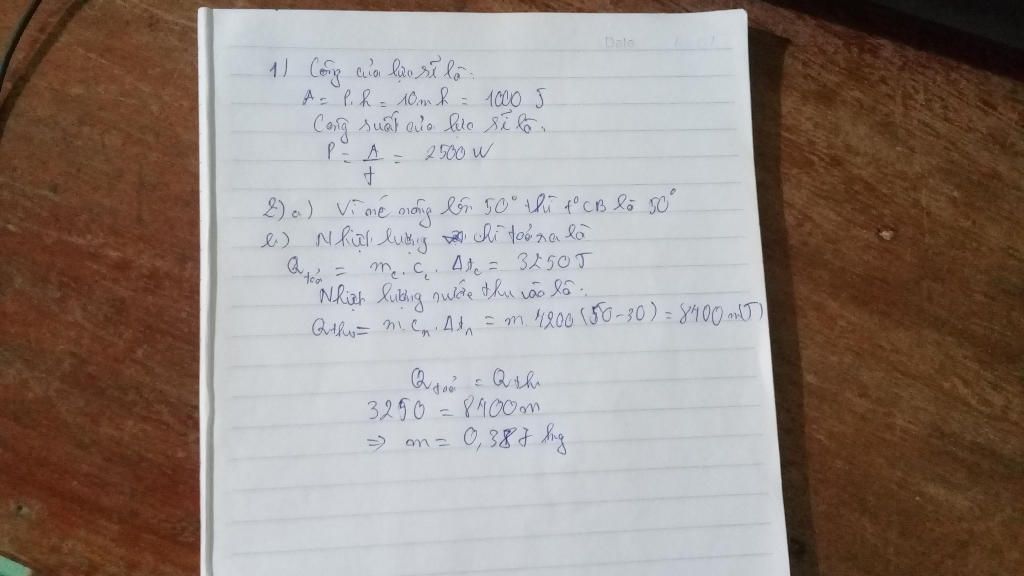 Date
1) Công của lực sĩ là:
A = P.h = 10m h = 1000 J
Công suất của lực sĩ là:
P = A/t = 2500 W
2) a) Vì nó nóng lên 50° thì t° CB là 50°
b) Nhiệt lượng chì toả ra là
Qtoả = mc. cc. Δtc = 3250J
Nhiệt lượng nước thu vào là:
Qthu = m.cn.Δtn = m.4200(50-30) = 8400m(J)
Qtoả = Qthu
3250 = 8400m
⇒ m = 0,387 kg